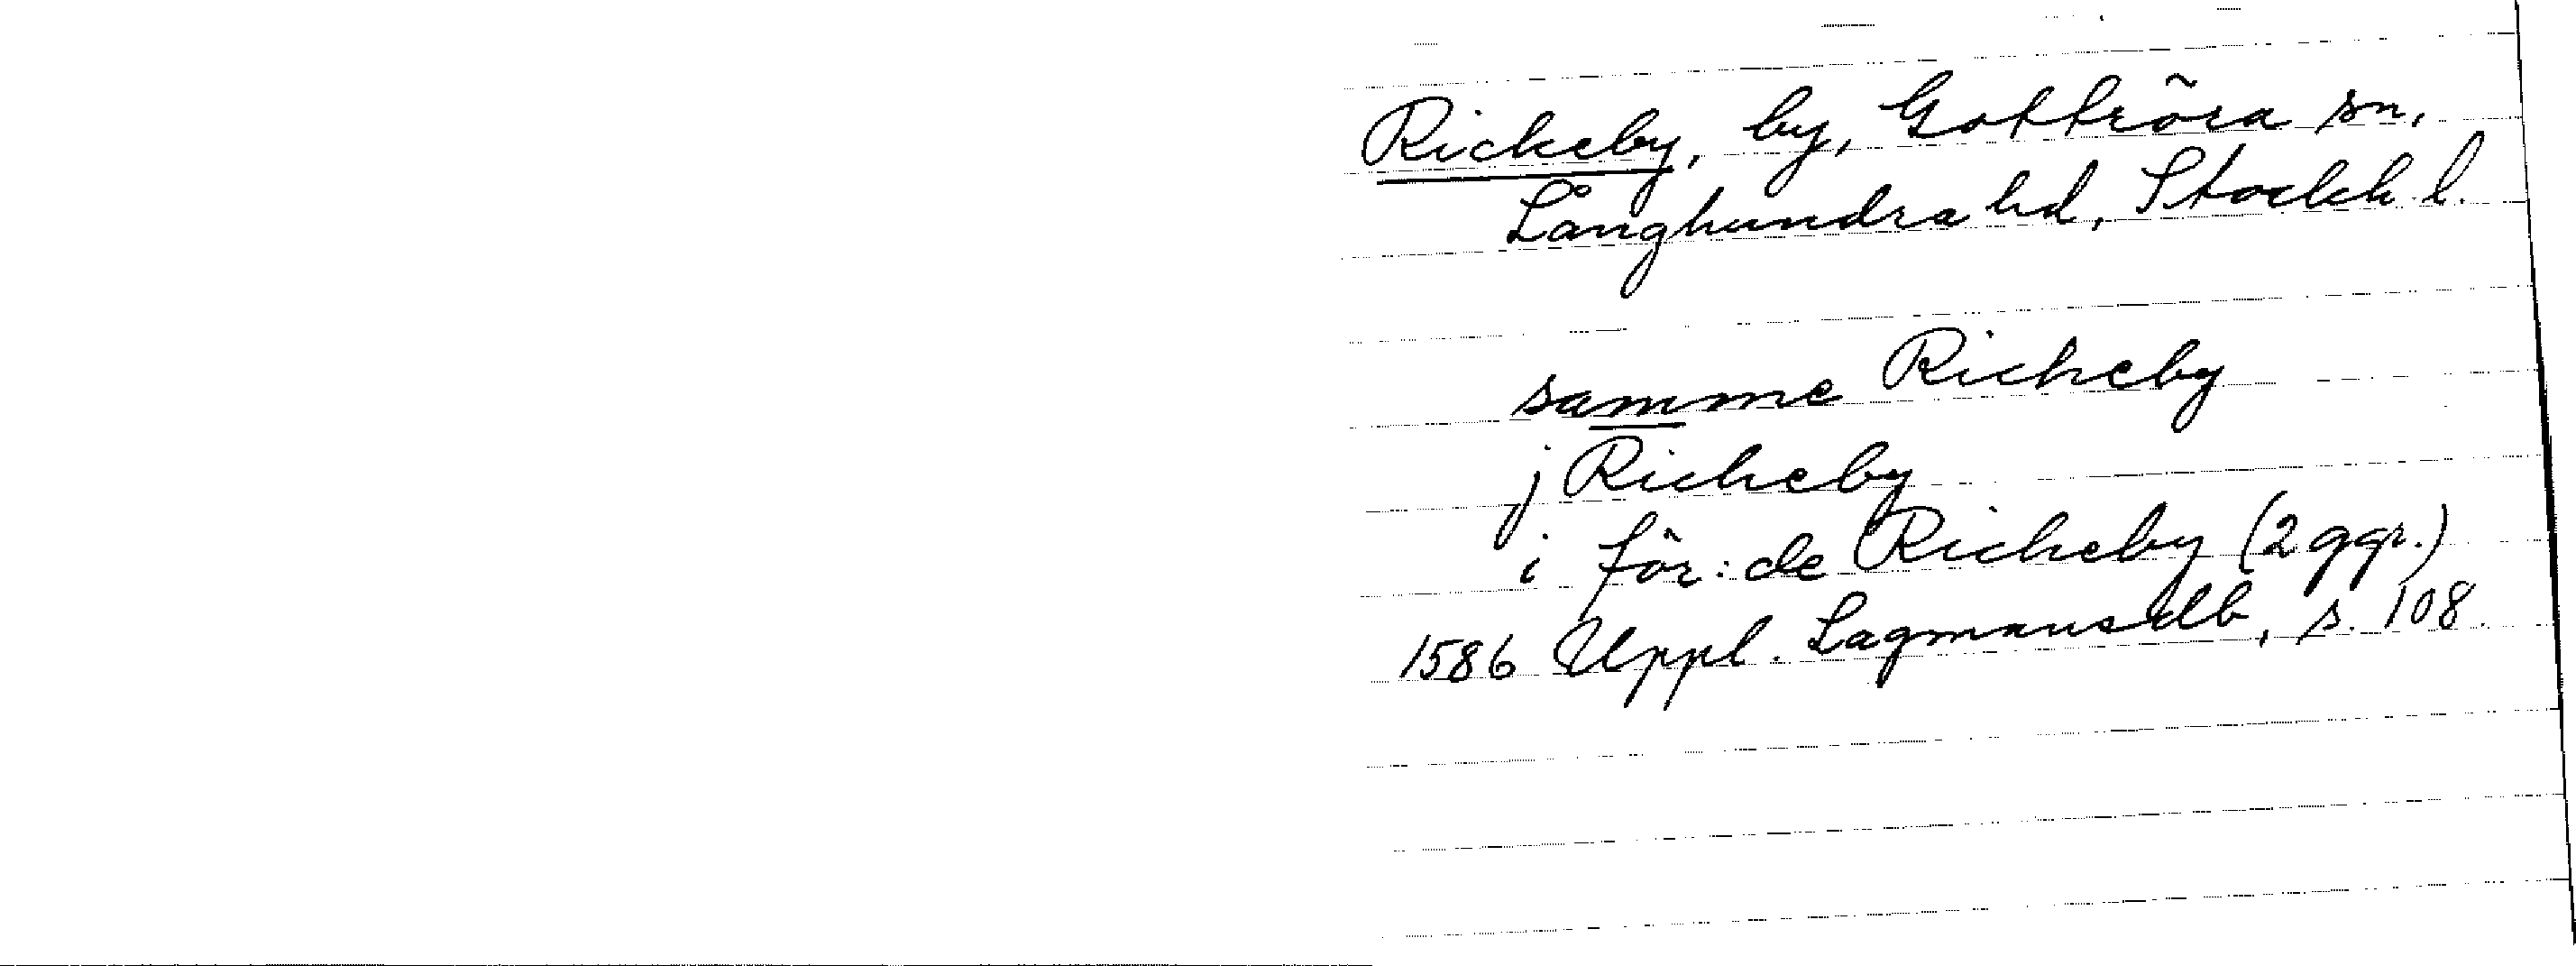 Rickeby, by, Gottröra sn,
Långhundra hd, Stockh. l.
samme Richeby
j Richeby
i för:de Richeby (2 ggr.)
1586 Uppl. Lagmansdb, s. 108.